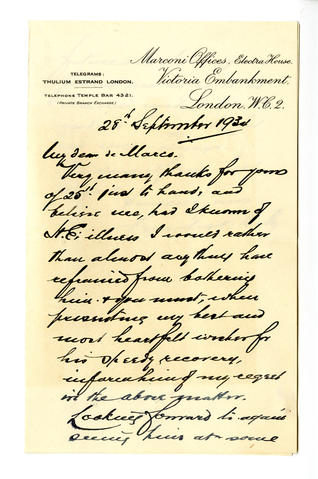 TELEGRAMS:
THULIUM ESTRAND LONDON.
TELEPHONE TEMPLE BAR 4321.
(PRIVATE BRANCH EXCHANGE)
Marconi Offices, Electra House.
Victoria Embankment.
London. W.C.2.
28th September 1934
My dear de Marco.
Very many thanks for yours
of 25th just to hand, and
believe me, had I known of
H.E. illness I would rather
than almost anything have
refrained from bothering
him. & you must, when
presenting my best and
most heartfelt wishes for
his speedy recovery,
inform him of my regret
in the above matter.
Looking forward to again
seeing him at some